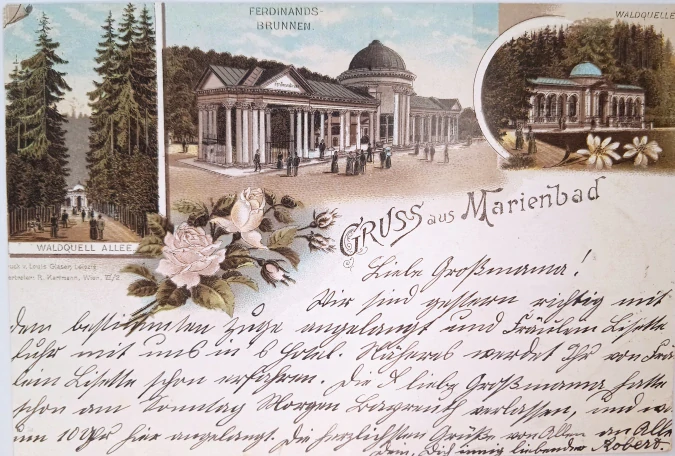 FERDINANDS-
BRUNNEN.
WALDQUELLE
WALDQUELL ALLEE.
Druck v. Louis Glaser, Leipzig
Vertreter: R. Hartmann, Wien, VI/2
GRUSS aus Marienbad
Liebe Großmama!
Wir sind gestern richtig mit
dem bestimmten Zuge angelangt und Fräulein Lisette
fuhr mit uns in's Hotel. Näheres werdet Ihr von Fräu
lein Lisette schon erfahren. Die liebe Großmama hatte
schon am Sonntag Morgen Bayreuth verlassen, und
um 10 Uhr hier angelangt. Die herzlichsten Grüße von Allen an Alle
Dein, Dich innig liebender Robert.